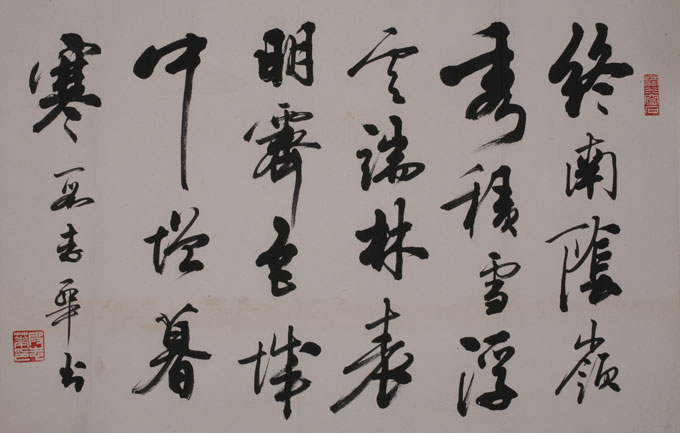 終南陰嶺
秀積雪浮
云端林表
明霽色城
中增暮
寒
志華书